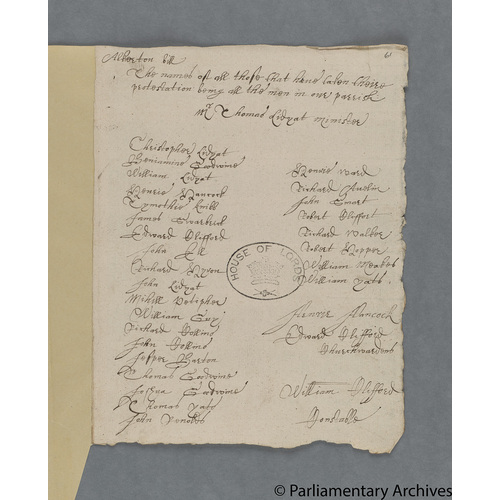 61
Alberton bill
The names of all those that have taken theire
protestation being all the men in our parrish
Mr Thomas Lidyat minister
Christopher Lidyat
Beniamine Goodwine
William Lidyat
Henrie Hancock
Tymothie
James
Edward Clifford
John Hill
Richard
John Lidyat
Mihill
William Guy
Richard Collins
John Collins
Jesper Barton
Thomas Goodwine
Joshua Goodwine
Thomas yats
John
Henrie ward
Richard Austin
John Smart
Robert Cliffort
Richard Walker
Robert Hopper
William Meakes
William yats
HOUSE OF LORDS
Henrie Hancock
Edward Clifford
Churchwardens
William Clifford
Constable
© Parliamentary Archives